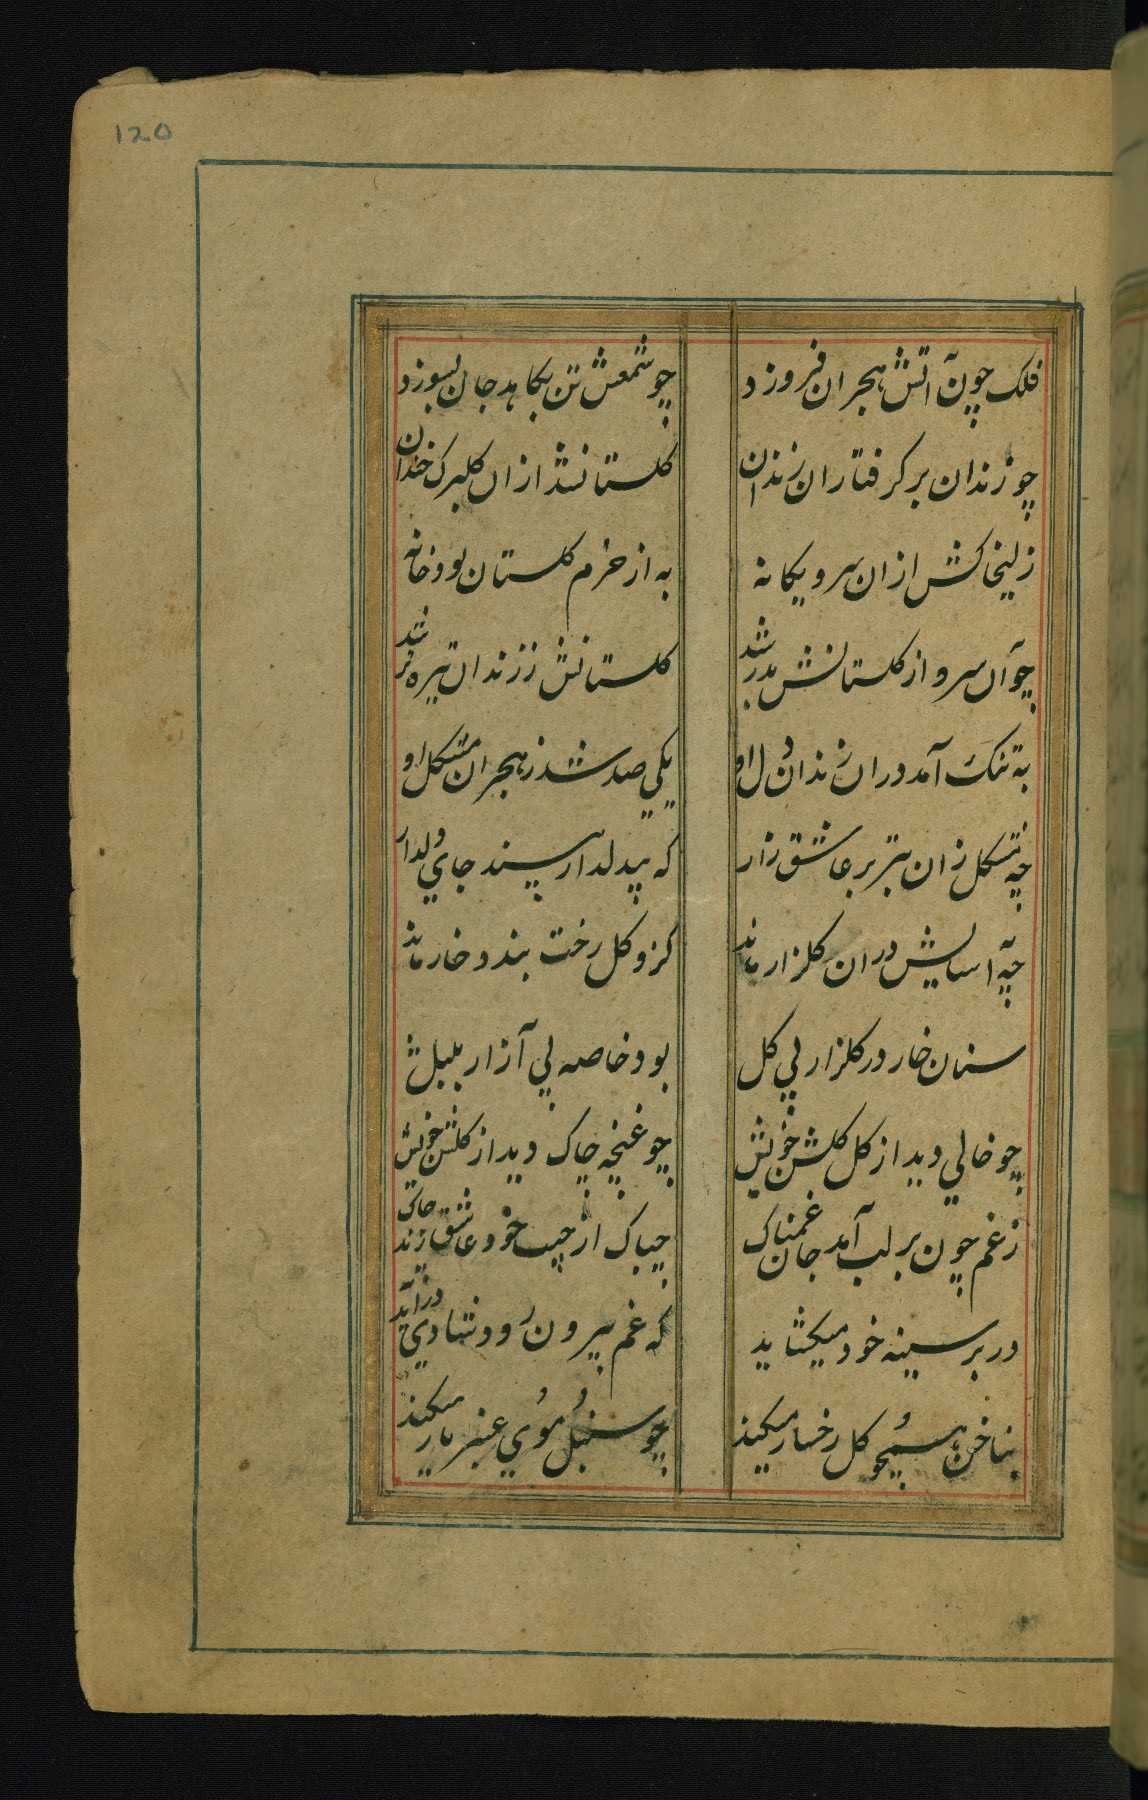 120
فلک چون آتش هجران فروزد چو شمعش تن بکاهد جان بسوزد
چو زندان بر کرفتاران زندان کلستان شد ازان کلبرک خندان
زلیخا کش ازان سرو یکانه به از خرم کلستان بود خانه
چو آن سرو از کلستانش بدر شد کلستانش ز زندان تیره تر شد
به تنک آمد دران زندان دل او یکی صد شد ز هجران مشکل او
چه مشکل زان بتر بر عاشق زار که بیدلدار بیند جای دلدار
چه آسایش دران کلزار ماند کزو کل رخت بندد خار ماند
سنان خار در کلزار بی کل بود خاصه پی آزار بلبل
چو خالی دید از کل کلشن خویش چو غنچه چاک دید از کلشن خویش
ز غم چون بر لب آمد جان غمناک چباک از جیب خود عاشق زند چاک
در بر سینه خود میکشاید که غم بیرون رود شادی درآید
بناخن همچو کل رخسار میکند چو سنبل موی عنبر بار میکند